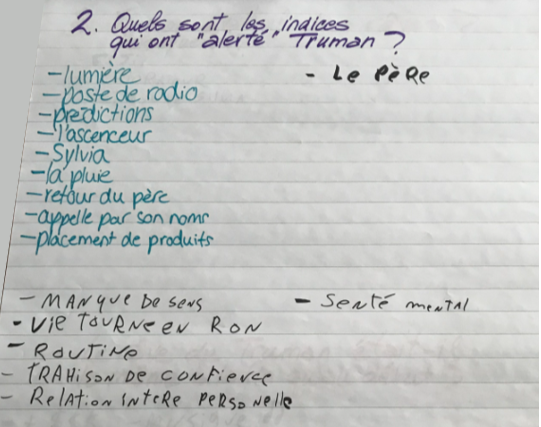 2. Quels sont les indices
qui ont "alerté" Truman ?
- lumière
- Le PÈRe
- poste de radio
- prédictions
- l'ascenceur
- Sylvia
- la pluie
- retour du père
- appelle par son noms
- placement de produits
- MANQUE De seNs
- SeNté meNtAl
- Vie TOURNe eN RON
- ROUTINe
- TRAHisoN De CoNFieNce
- RelAtioN iNteRe PeRsoNelle